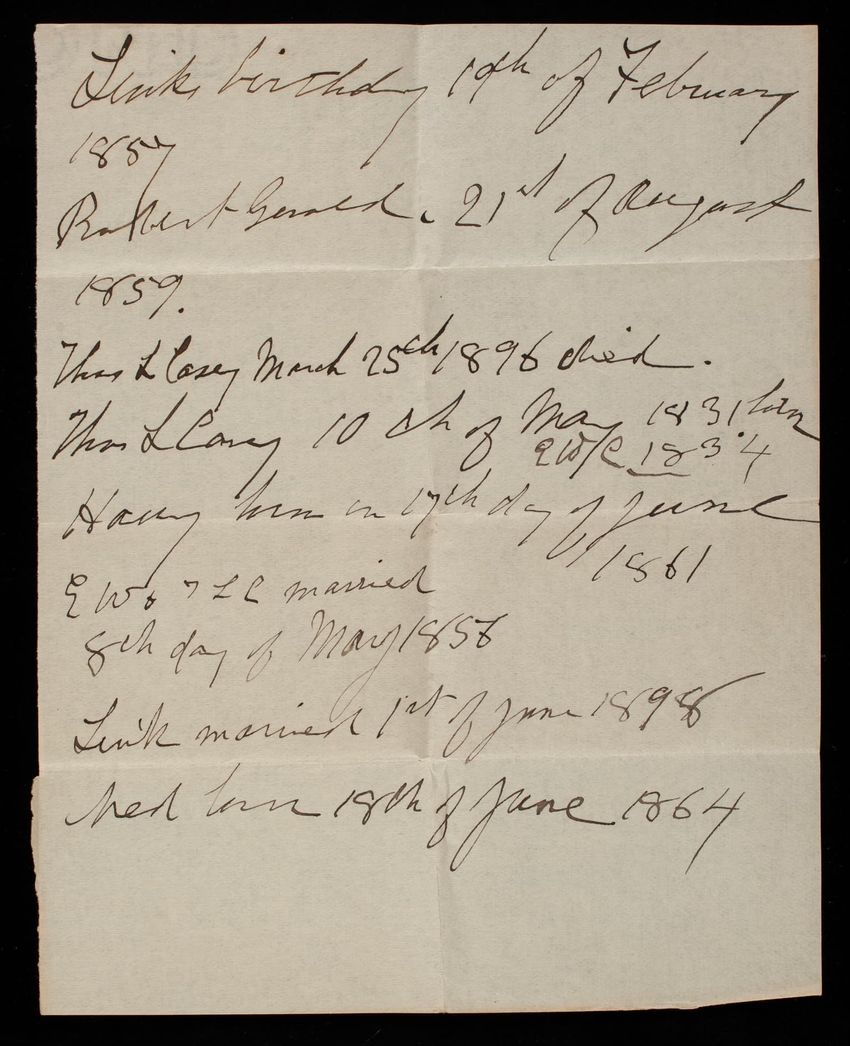 Links birthday 19th of February
1857
Robert Gerald. 21st of August
1859.
Thos L Casey March 25th 1896 died.
Thos L Casey 10th of May 1831 born
E W C 1834
Harry born on 17th day of June
1861
E W & T L C married
8th day of May 1856
Link married 1st of June 1898
Ned born 18th of June 1864